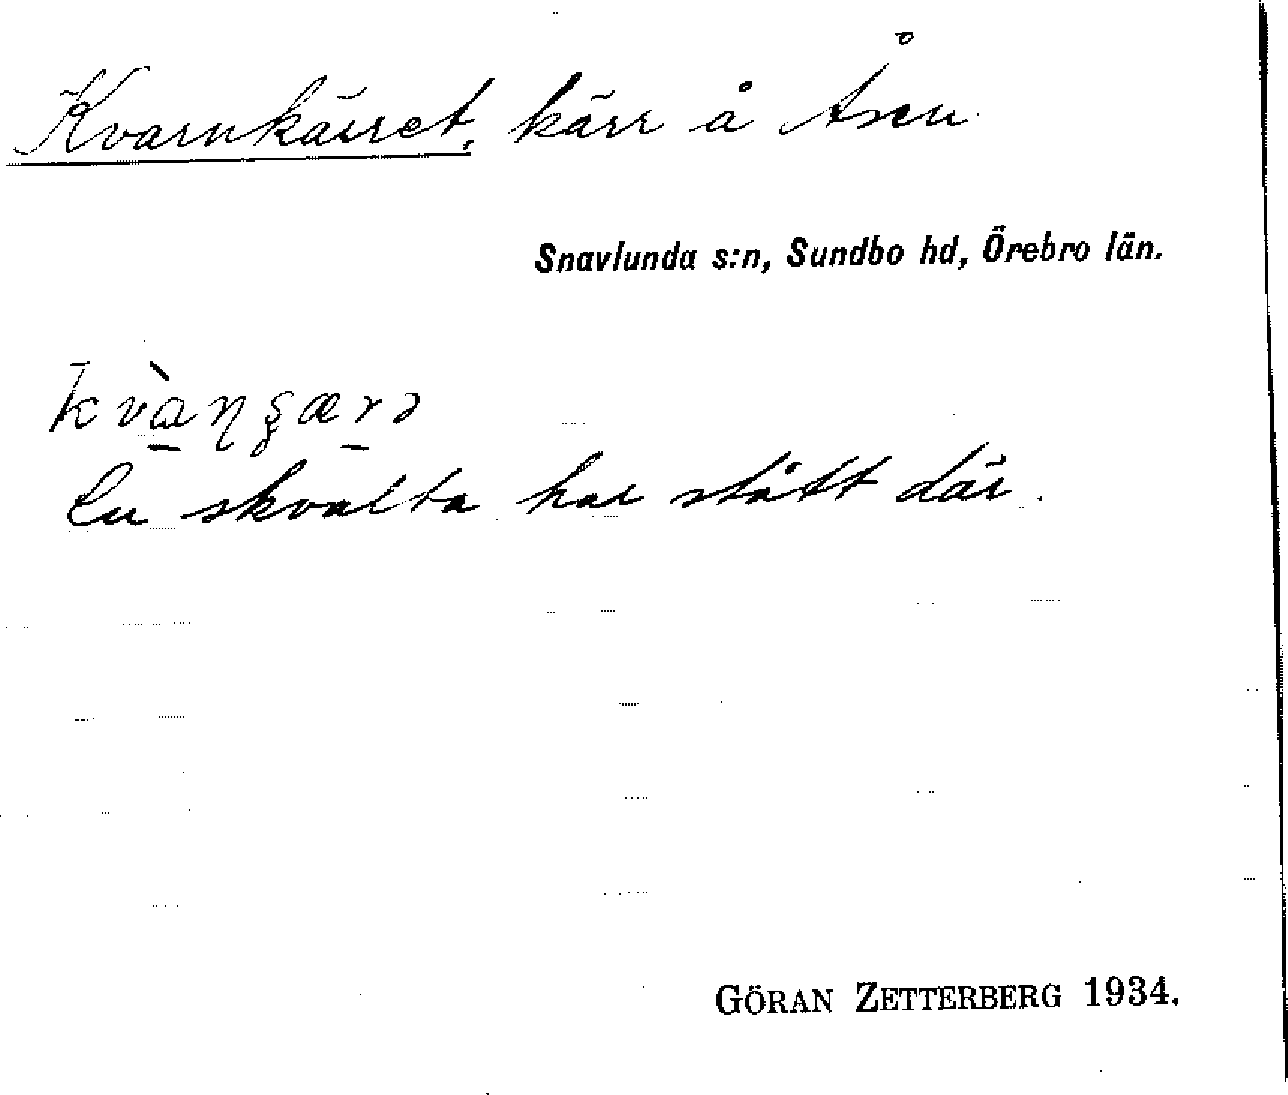 Kvarnkärret, kärr å Åsen
Snavlunda s:n, Sundbo hd, Örebro län.
En skvalta har stått där.
GÖRAN ZETTERBERG 1934.